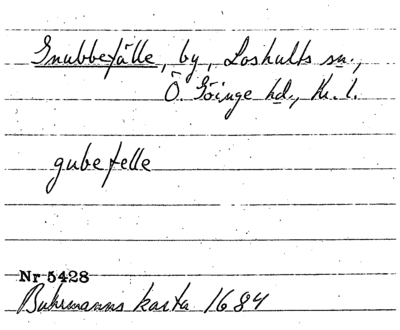 Gnubbefälle, by, Loshults sn.,
Ö. Göinge hd., Kr. l.
gubefelle
Nr 5428
Buhrmanns karta 1684